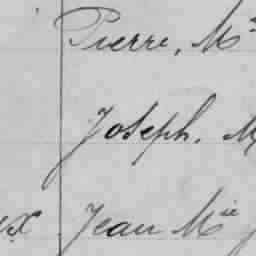 Pierre, M
Joseph. M
x Jean Mie